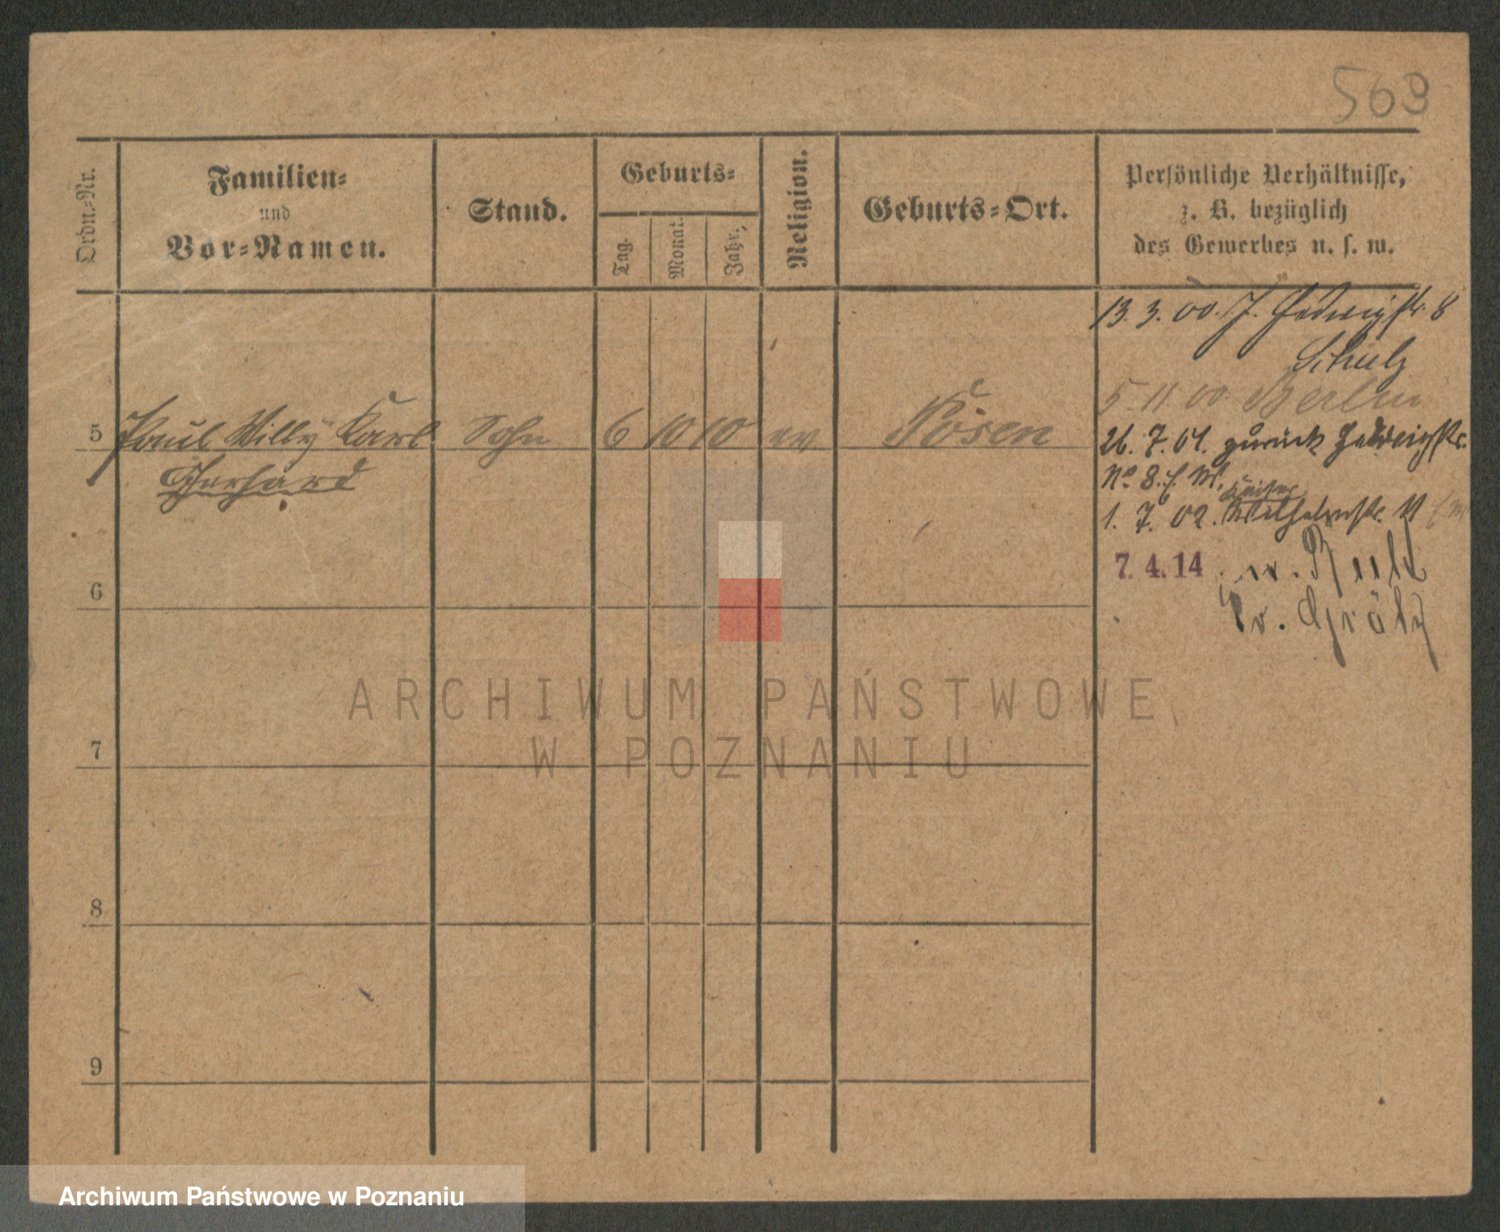 563
Ordn.-Nr.
Familien-
und
Vor-Namen.
Stand.
Geburts-
Tag.
Monat.
Jahr.
Religion.
Geburts-Ort.
Persönliche Verhältnisse,
z. B. bezüglich
des Gewerbes u. s. w.
13. 3. 00. J. Hedwigstr. 8
Schulz
5. 11. 00 Berlin
5 Paul Willy Karl Sohn 6 10 10 ev Posen
Gerhard
26. 7. 01. zurück Hedwigstr.
No 8.
Kaiser
1. 7. 02. Wilhelmstr.
7. 4. 14
6
7
8
9
ARCHIWUM PAŃSTWOWE
W POZNANIU
Archiwum Państwowe w Poznaniu